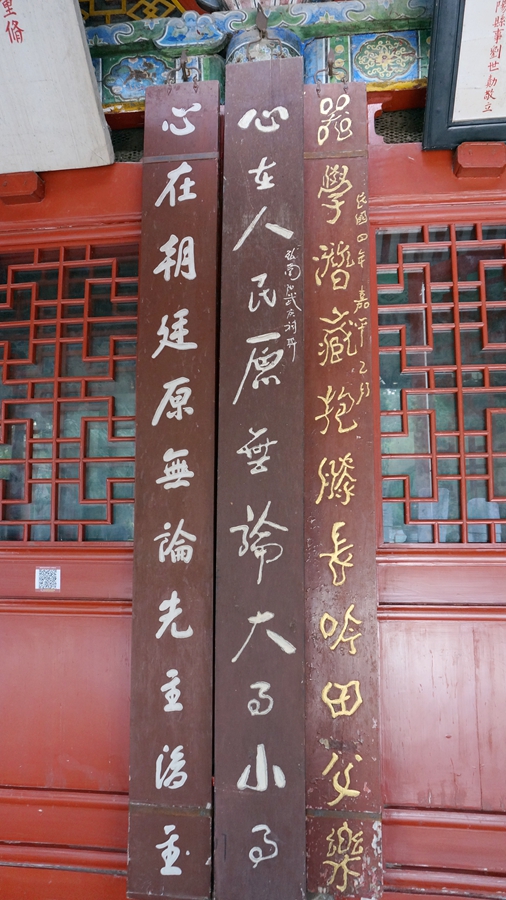 陽縣事劉世勛敬立
民國四年 嘉平之月
器學潛藏抱膝長吟田父樂
心在人民原無論大事小事
心在朝廷原無論先主後主
重脩